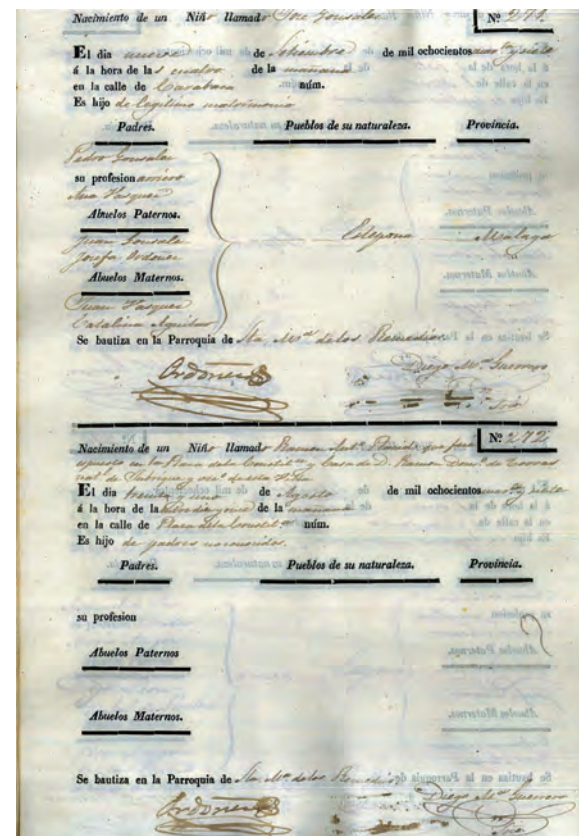 Nacimiento de un Niño llamado José Gonsales Nº 271
El dia nueve de Setiembre de mil ochocientos cuarta y siete
á la hora de las cuatro de la mañana
en la calle de Caravaca núm.
Es hijo de legitimo matrimonio
Padres. Pueblos de su naturaleza. Provincia.
Pedro Gonsales
su profesion arriero
Ana Vasquez
Abuelos Paternos.
Juan Gonsales Estepona Malaga
Josefa Ordoñez
Abuelos Maternos.
Juan Vasquez
Catalina Aguilar
Se bautiza en la Parroquia de Sta. Mª de los Remedios
Ordoñez Diego Mª Guerrero
Nacimiento de un Niño llamado Ramon Antº Placido que fue Nº 272
espuesto en la Plaza de la Constiton y Casa de D. Ramon
de esta Villa
El dia treinta y uno de Agosto de mil ochocientos cuarta y siete
á la hora de la de la mañana
en la calle de Plaza de la Constiton núm.
Es hijo de padres no conocidos.
Padres. Pueblos de su naturaleza. Provincia.
su profesion
Abuelos Paternos
Abuelos Maternos.
Se bautiza en la Parroquia de Sta. Mª de los Remedios
Ordoñez Diego Mª Guerrero